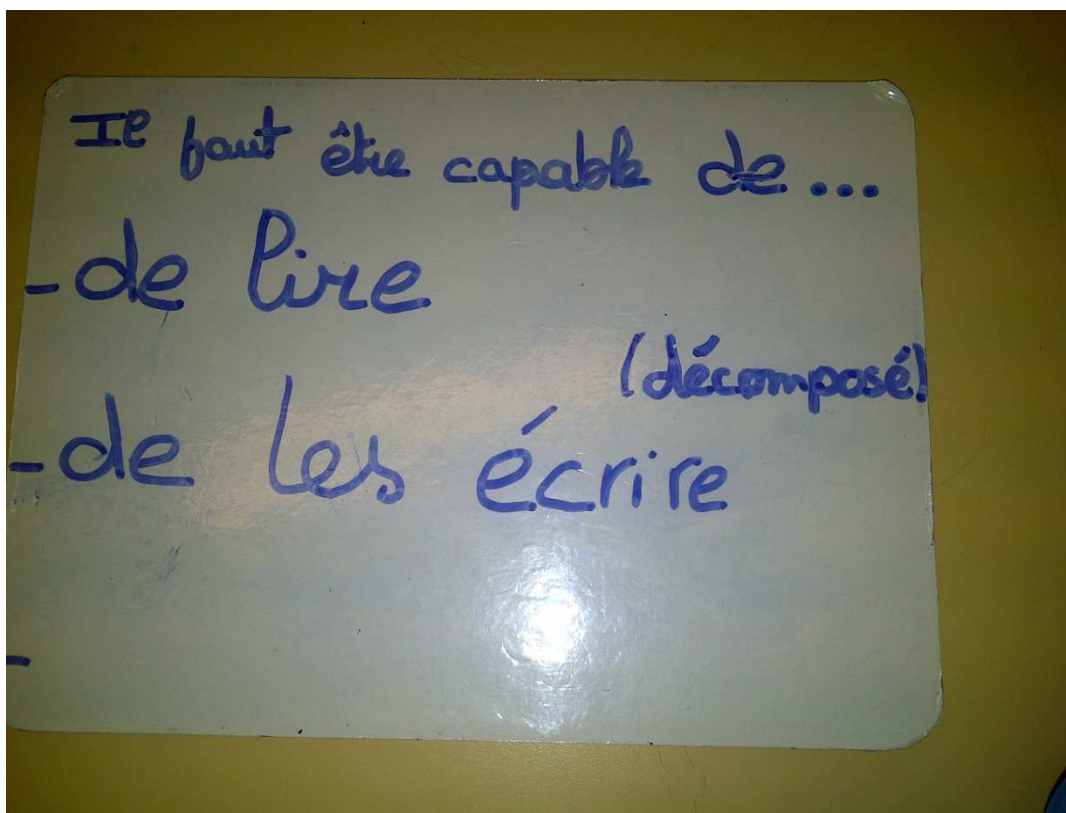 Il faut être capable de...
- de lire
(décomposé)
- de les écrire
-